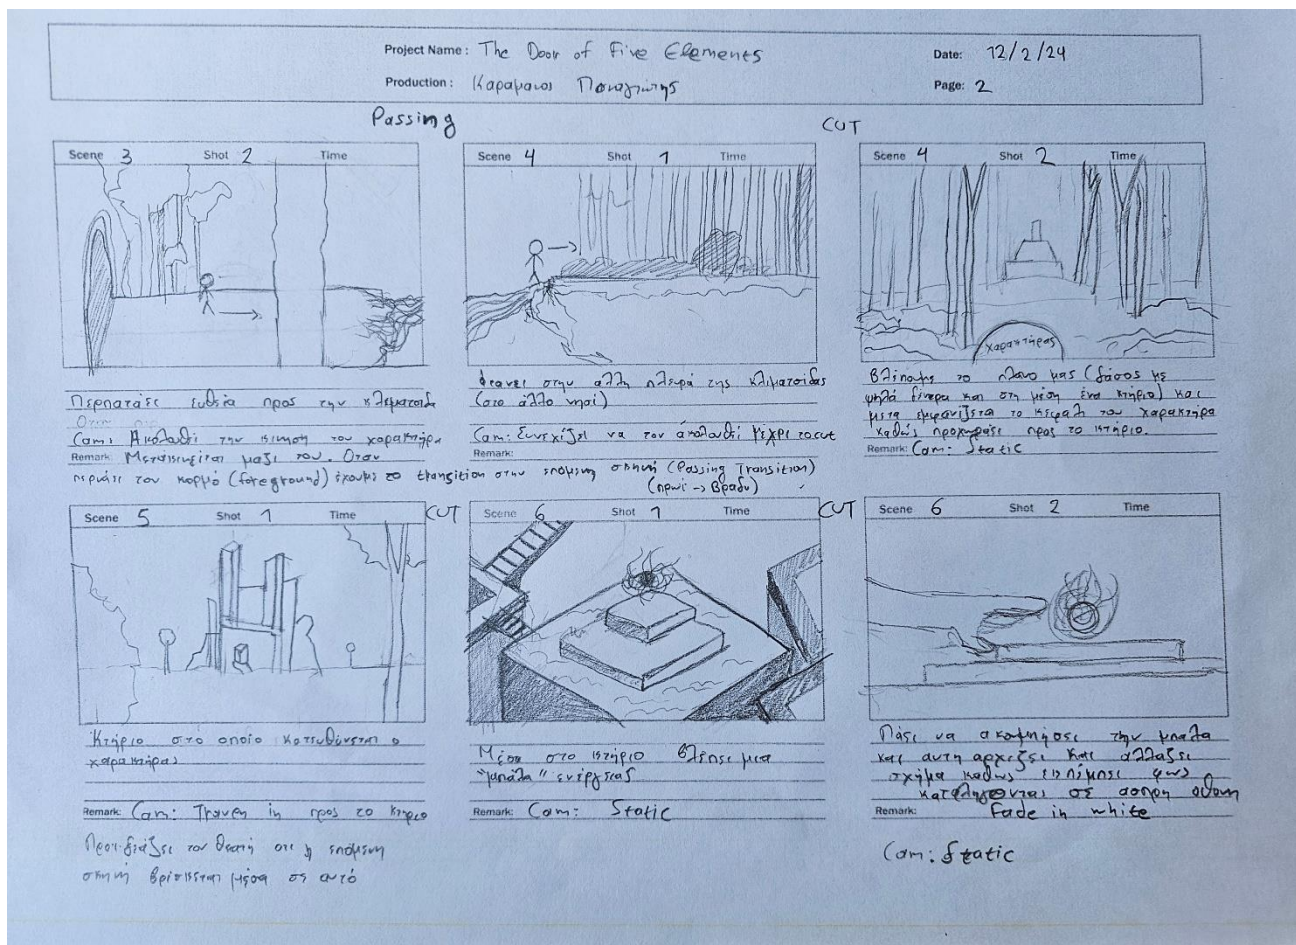 Project Name: The Door of Five Elements
Date: 12/2/24
Production: Καραμανος Παναγιώτης
Page: 2
Passing
CUT
Scene 3 Shot 2 Time
Scene 4 Shot 1 Time
Scene 4 Shot 2 Time
χαρακτήρας
Περπατάει ευθεία προς την κλεματσιδα
Οταν
Cam: Ακολουθεί την κινηση του χαρακτήρα
Remark: Μετακινείται μαζι του. Οταν
περνάει τον κορμό (foreground) έχουμε το transition στην επόμενη σκηνή (Passing Transition)
(πρωί -> Βραδυ)
Φτανει στην αλλη πλευρά της κλιματσίδας
(στο άλλο νησί)
Cam: Συνεχίζει να τον ακολουθεί μέχρι το cut
Remark:
Βλέπουμε το πλανο μας (δάσος με
ψηλά δέντρα και στη μέση ένα κτήριο) και
μετα εμφανίζεται το κεφαλι του χαρακτήρα
καθώς προχωράει προς το κτήριο.
Remark: Cam: Static
Scene 5 Shot 1 Time
CUT
Scene 6 Shot 1 Time
CUT
Scene 6 Shot 2 Time
Κτήριο στο οποίο κατευθύνεται ο
χαρακτήρας
Remark: Cam: Traveling in προς το κτηριο
Προϊδεάζει τον θεατή οτι η επόμενη
σκηνή βρίσκεται μέσα σε αυτό
Μέσα στο κτήριο βλέπει μια
"μπάλα" ενέργειας
Remark: Cam: Static
Πάει να ακουμπήσει την μπαλα
και αυτη αρχιζει και αλλαζει
σχήμα καθως εκπέμπει φως
καταλήγοντας σε ασπρη οθονη
Remark: Fade in white
Cam: Static